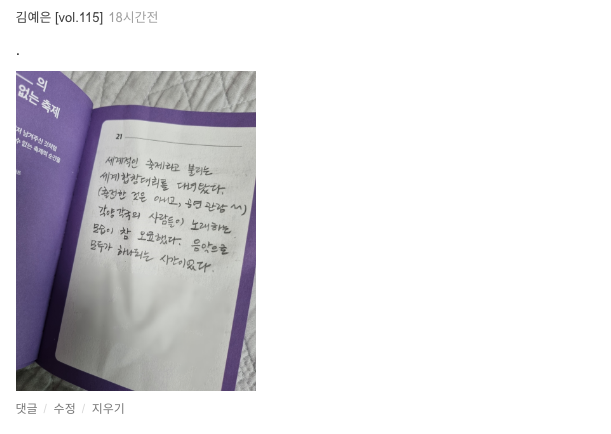 김예은 [vol.115] 18시간전
.
의
없는 축제
21
세계적인 축제라고 불리는
세계합창대회를 다녀왔다.
(출전한 것은 아니고, 공연 관람 ~~)
각양각국의 사람들이 노래하는
모습이 참 묘했다. 음악으로
모두가 하나되는 시간이었다.
댓글 / 수정 / 지우기